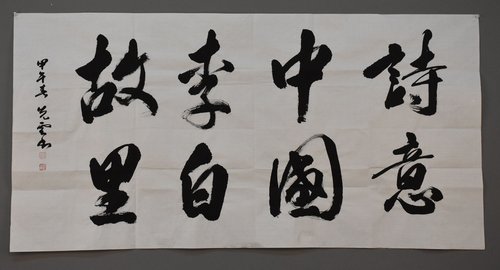 詩意
中國
李白
故里
甲午春